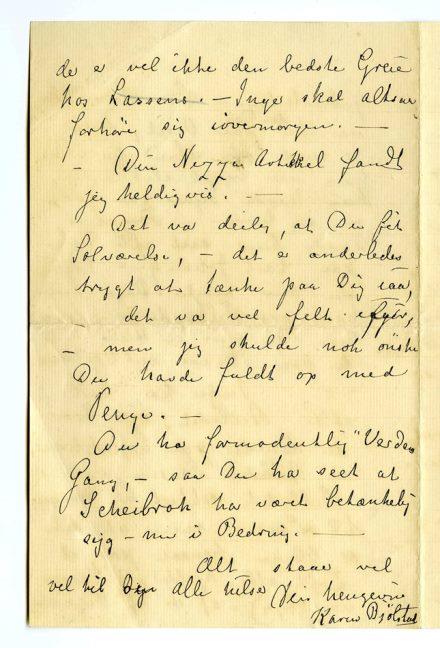 de e vel ikke den bedste Greie
hos Lassens. — Inge skal altsaa
forhøre sig iovermorgen. —
- Din Nizza Artikkel fandt
jeg heldigvis. —
Det va deilig, at Du fik
Solværelse, — det e anderledes
trygt at tænke paa Dig iaa,
det va vel fælt ifjor,
- men jeg skulde nok ønske
Du havde fuldt op med
Penge. —
Du ha formodentlig "Verdens
Gang, — saa Du ha seet at
Scheibrok ha været betænkelig
syg — nu i Bedring. —
Alt staar vel
vel til alle hilse Din hengivne
Karen Bjølstad